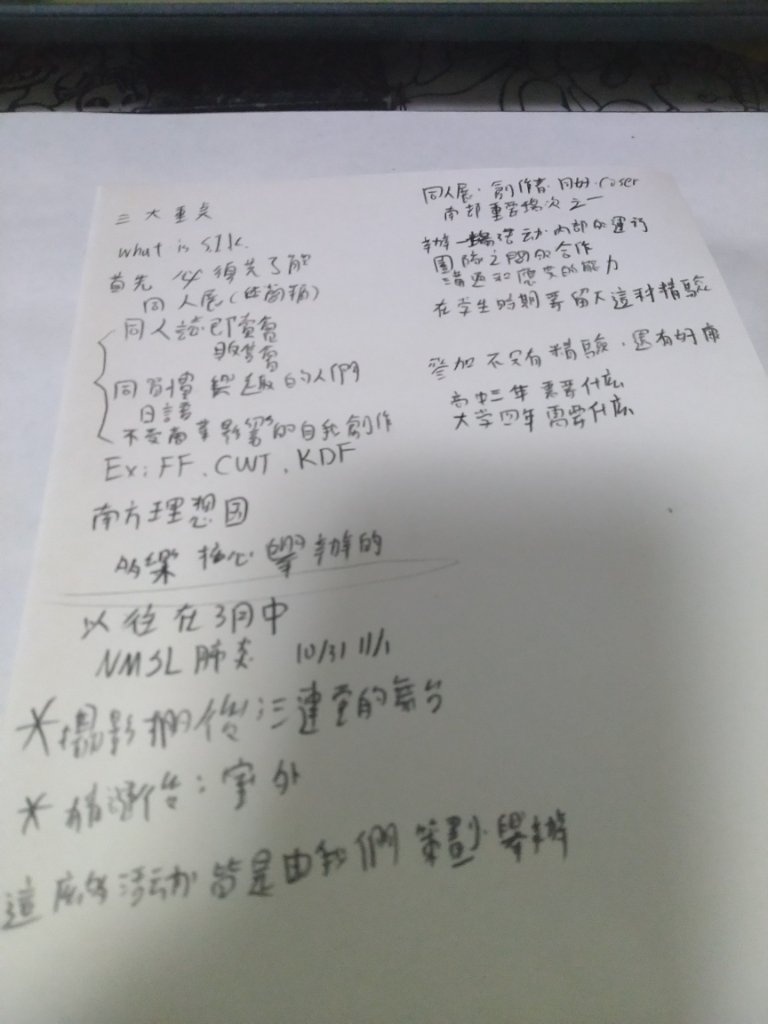 三大重点
what is S.I.K.
首先 必須先了解
同人展(任商場)
同人誌即賣會
販售會
同習慣 興趣的人們
日語
不受商業影響的自我創作
Ex: FF、CWT、KDF
南方理想国
為 核心 舉辦的
以往在3月中
NMSL 肺炎 10/31 11/1
*攝影棚後:三連 的舞台
* 後:室外
這 活动皆是由我們策劃、舉辦
同人展.創作者.同好.Coser
南部重要場次之一
辦一場活动內部的運行
團隊之間的合作
溝通和應變的能力
在学生時期 留下這种精驗
參加不只有精驗,還有好康
高中三年 需要什么
大学四年需要什么